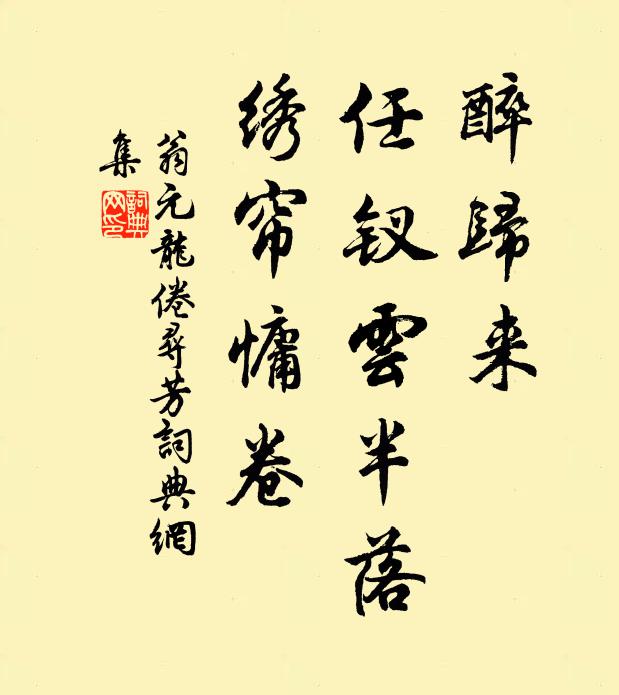 醉歸来
任钗雲半落
绣帘慵卷
翁元龍倦尋芳詞典網
集
詞典
网印